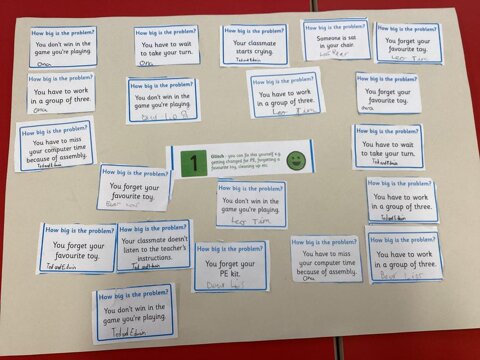 How big is the problem?
You don't win in the
game you're playing.
Oma
How big is the problem?
You have to wait
to take your turn.
Oma
How big is the problem?
Your classmate
starts crying.
Ted and Edwin
How big is the problem?
Someone is sat
in your chair.
How big is the problem?
You forget your
favourite toy.
Leo Tim
How big is the problem?
You have to work
in a group of three.
Oma
How big is the problem?
You don't win in the
game you're playing.
How big is the problem?
You have to work
in a group of three.
Leo Tim
How big is the problem?
You forget your
favourite toy.
Oma
How big is the problem?
You have to miss
your computer time
because of assembly.
Ted and Edwin
1
Glitch - you can fix this yourself e.g.
getting changed for PE, forgetting a
favourite toy, cleaning up etc
How big is the problem?
You have to wait
to take your turn.
Ted and Edwin
How big is the problem?
You forget your
favourite toy.
How big is the problem?
You don't win in the
game you're playing.
Leo Tim
How big is the problem?
You have to work
in a group of three.
Ted and Edwin
How big is the problem?
You forget your
favourite toy.
Ted and Edwin
How big is the problem?
Your classmate doesn't
listen to the teacher's
instructions.
Ted and Edwin
How big is the problem?
You forget your
PE kit.
How big is the problem?
You have to miss
your computer time
because of assembly.
Oma
How big is the problem?
You have to work
in a group of three.
How big is the problem?
You don't win in the
game you're playing.
Ted and Edwin